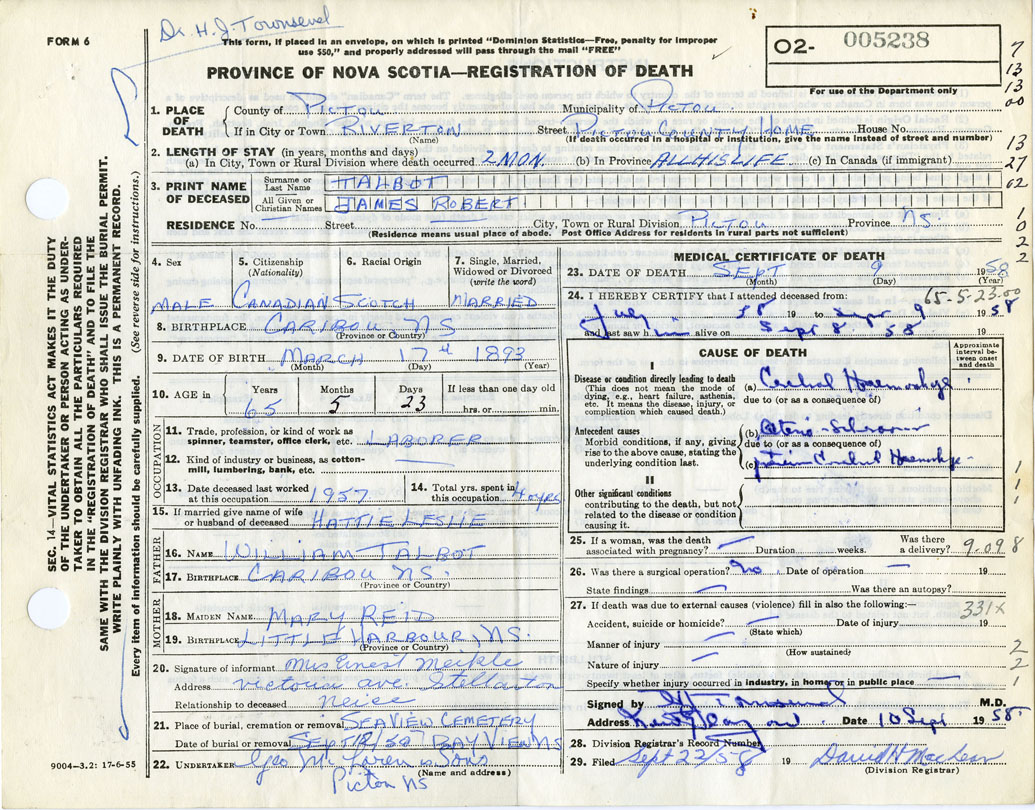 Dr. H. J. Townsend
FORM 6
This form, if placed in an envelope, on which is printed "Dominion Statistics—Free, penalty for improper
use $50," and properly addressed will pass through the mail "FREE"
PROVINCE OF NOVA SCOTIA—REGISTRATION OF DEATH
O2- 005238
For use of the Department only
7
13
13
00
13
27
02
1
0
2
2
1. PLACE OF DEATH
County of PICTOU Municipality of PICTOU
If in City or Town RIVERTON Street PICTOU COUNTY HOME House No.
(Name) (If death occurred in a hospital or institution, give the name instead of street and number)
2. LENGTH OF STAY (in years, months and days)
(a) In City, Town or Rural Division where death occurred 2 MON. (b) In Province ALL HIS LIFE (c) In Canada (if immigrant)
3. PRINT NAME OF DECEASED
Surname or Last Name TALBOT
All Given or Christian Names JAMES ROBERT
RESIDENCE No. Street City, Town or Rural Division PICTOU Province NS.
(Residence means usual place of abode. Post Office Address for residents in rural parts not sufficient)
SEC. 14—VITAL STATISTICS ACT MAKES IT THE DUTY
OF THE UNDERTAKER OR PERSON ACTING AS UNDER-
TAKER TO OBTAIN ALL THE PARTICULARS REQUIRED
IN THE "REGISTRATION OF DEATH" AND TO FILE THE
SAME WITH THE DIVISION REGISTRAR WHO SHALL ISSUE THE BURIAL PERMIT.
WRITE PLAINLY WITH UNFADING INK. THIS IS A PERMANENT RECORD.
Every item of information should be carefully supplied. (See reverse side for instructions.)
4. Sex
MALE
5. Citizenship
(Nationality)
CANADIAN
6. Racial Origin
SCOTCH
7. Single, Married,
Widowed or Divorced
(write the word)
MARRIED
8. BIRTHPLACE CARIBOU, NS
(Province or Country)
9. DATE OF BIRTH MARCH 17th 1893
(Month) (Day) (Year)
10. AGE in
Years Months Days If less than one day old
65 5 23 hrs. or min.
OCCUPATION
11. Trade, profession, or kind of work as
spinner, teamster, office clerk, etc. LABORER
12. Kind of industry or business, as cotton-
mill, lumbering, bank, etc.
13. Date deceased last worked
at this occupation 1957
14. Total yrs. spent in
this occupation 40 yrs
15. If married give name of wife
or husband of deceased HATTIE LESLIE
FATHER
16. NAME WILLIAM TALBOT
17. BIRTHPLACE CARIBOU NS.
(Province or Country)
MOTHER
18. MAIDEN NAME MARY REID
19. BIRTHPLACE LITTLE HARBOUR, NS.
(Province or Country)
20. Signature of informant Mrs Ernest Meikle
Address Victoria ave. Stellarton
Relationship to deceased neice
21. Place of burial, cremation or removal SEAVIEW CEMETERY
Date of burial or removal SEPT 12/58 BAY VIEW NS
22. UNDERTAKER Geo McLaren & Sons
(Name and address)
Pictou NS
9004-3.2: 17-6-55
MEDICAL CERTIFICATE OF DEATH
23. DATE OF DEATH SEPT 9 1958
(Month) (Day) (Year)
24. I HEREBY CERTIFY that I attended deceased from: 65-5-23.00
July 58 19 to Sept 9 1958
and last saw him alive on Sept 8 58 19
CAUSE OF DEATH
Approximate
interval be-
tween onset
and death
I
Disease or condition directly leading to death
(This does not mean the mode of
dying, e.g., heart failure, asthenia,
etc. It means the disease, injury, or
complication which caused death.)
(a) Cerebral Haemorrhage
due to (or as a consequence of)
Antecedent causes
Morbid conditions, if any, giving
rise to the above cause, stating the
underlying condition last.
(b)
due to (or as a consequence of)
(c) Cerebral Haemorrhage
II
Other significant conditions
contributing to the death, but not
related to the disease or condition
causing it.
1
1
1
25. If a woman, was the death
associated with pregnancy? Duration weeks. Was there
a delivery? 9.098
26. Was there a surgical operation? No Date of operation 19
State findings Was there an autopsy?
27. If death was due to external causes (violence) fill in also the following:— 331X
Accident, suicide or homicide? Date of injury 19
(State which)
Manner of injury 2
(How sustained)
Nature of injury 2
Specify whether injury occurred in industry, in home or in public place 1
Signed by HJ Townsend M.D.
Address Date 10 Sept 1958.
28. Division Registrar's Record Number
29. Filed Sept 23/58 19 David H MacLean
(Division Registrar)